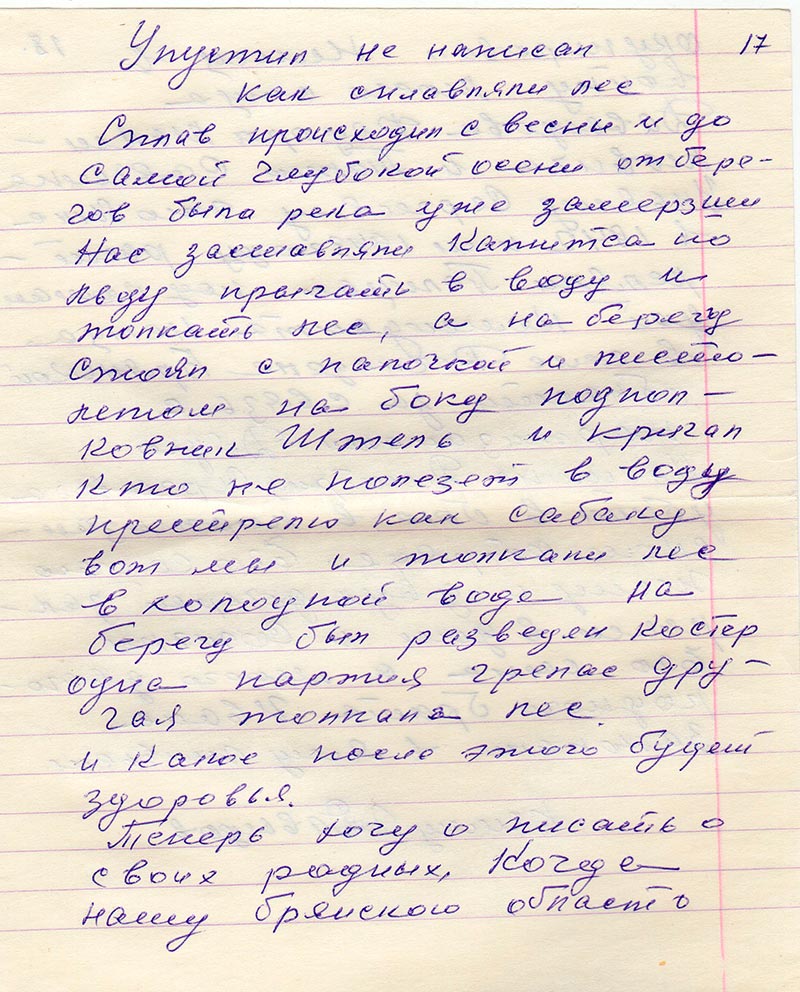 Упустил не написал 17
как сплавляли лес
Сплав происходил с весны и до
самой глубокой осени от бере-
гов была река уже замерзши
Нас заставляли кажитса по
льду прыгать в воду и
толкать лес, а на берегу
стоял с палочкой и писто-
летом на боку подпол-
ковник Штель и кричал
кто не полезет в воду
пристрелю как сабаку
вот мы и толкали лес
в холодной воде на
берегу был разведен костер
одна партия грелас дру-
гая толкала лес.
и какое после этого будет
здоровья.
Теперь хочу о писать о
своих родных, Когда
нашу брянскою область